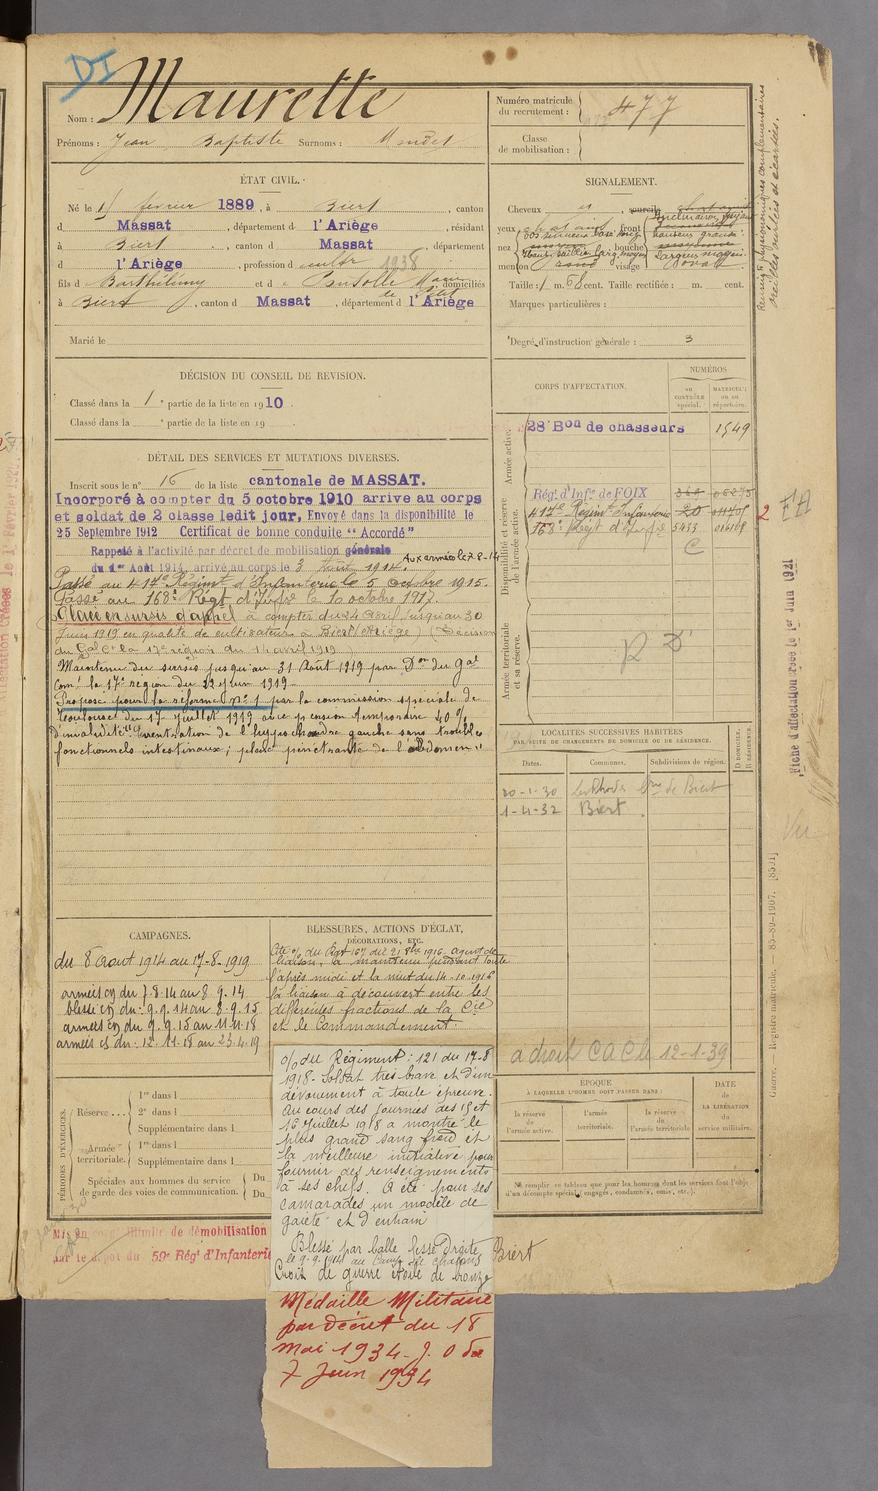 DI
Nom : Maurette
Prénoms : Jean Baptiste Surnoms :
ÉTAT CIVIL.
Né le 1 février 1889, à Biert, canton
d Massat, département d l'Ariège, résidant
à Biert, canton d Massat, département
d l'Ariège, profession d cultr 1938
fils d Barthélémy et d domiciliés
à Biert, canton d Massat, département d l'Ariège
Marié le
DÉCISION DU CONSEIL DE REVISION.
Classé dans la 1e partie de la liste en 1910.
Classé dans la e partie de la liste en 19 .
DÉTAIL DES SERVICES ET MUTATIONS DIVERSES.
Inscrit sous le n° 16 de la liste cantonale de MASSAT.
Incorporé à compter du 5 octobre 1910 arrivé au corps
et soldat de 2 classe ledit jour, Envoyé dans la disponibilité le
25 Septembre 1912 Certificat de bonne conduite "Accordé"
Rappelé à l'activité par décret de mobilisation générale
du 1er Août 1914, arrivé au corps le 3 Août 1914. Aux armées le 7-8-14
Passé au 417e Régimt d'Infanterie le 5 octobre 1915.
Passé au 168e Régt d'Infrie le 10 octobre 1917.
Placé en sursis d'appel à compter du 24 avril jusqu'au 30
Juin 1919 en qualité de cultivateur à Biert (Ariège) (Décision
du Gal Ct la 17e région du 11 avril 1919)
Maintenu du sursis jusqu'au 31 Août 1919 par Don du Gal
Comt la 17e région du 22 Juin 1919
Proposé pour la réforme n° 1 par la commission spéciale de
Toulouse du 17 Juillet 1919 avec pension temporaire 40%
d'invalidité "Eventration de l'hypochondre gauche sans troubles
fonctionnels intestinaux; plaie pénétrante de l'abdomen"
CAMPAGNES.
du 8 Août 1914 au 17-8-1919
armées du 7.8.14 au 8.9.14
blessé du: 9.9.14 au 8.9.15
armées du 9.9.15 au 11.11.18
armées du: 12.11.18 au 23.4.19
BLESSURES, ACTIONS D'ÉCLAT,
DÉCORATIONS, ETC.
Cité o/ du Rgt 167 du 21 8bre 1916. agent de
liaison, a maintenu pendant toute
l'après midi et la nuit du 14-10-1916
la liaison à découvert entre les
différentes fractions de la Cie
et le Commandement.
o/ du Régiment : 121 du 17-8
1918. Soldat très brave et d'un
dévouement à toute épreuve.
Au cours des journées des 15 et
16 Juillet 1918 a montré le
plus grand sang froid et
la meilleure initiative pour
fournir des renseignements
à ses chefs. A été pour ses
camarades un modèle de
gaieté et d'entrain
Blessé par balle fesse droite
le 9.9.1914 au Camp de chalons
Croix de guerre étoile de bronze
Médaille Militaire
par décret du 18
mai 1934 - J.O du
7 Juin 1934
PÉRIODES D'EXERCICES.
Réserve....
1re dans l
2e dans l
Supplémentaire dans l
Armée territoriale.
1re dans l
Supplémentaire dans l
Spéciales aux hommes du service
de garde des voies de communication.
Du
Du
Mis en congé illimité de démobilisation
par le dépôt du 59e Régt d'Infanterie
Biert
Numéro matricule
du recrutement : 477
Classe
de mobilisation :
SIGNALEMENT.
Cheveux et sourcils
yeux front
nez bouche
menton rond visage
Taille : 1 m. 68 cent. Taille rectifiée : m. cent.
Marques particulières :
Degré d'instruction générale : 3
Renseigts physionomiques complémentaires
oreilles ourlées et écartées.
CORPS D'AFFECTATION.
NUMÉROS
au contrôle spécial.
matricule ou au répertoire.
Armée active.
28 Bon de chasseurs 1549
Disponibilité et réserve de l'armée active.
Régt d'Infie de FOIX
417e Régiment Infanterie
168e Régt d'Infrie 5433
Armée territoriale et sa réserve.
LOCALITÉS SUCCESSIVES HABITÉES
PAR SUITE DE CHANGEMENTS DE DOMICILE OU DE RÉSIDENCE.
Dates.
Communes.
Subdivisions de région.
D DOMICILE. R RÉSIDENCE.
20-1-30 de Biert
1-4-32 Biert
a droit CAC le 12-1-39
ÉPOQUE
À LAQUELLE L'HOMME DOIT PASSER DANS :
la réserve de l'armée active.
l'armée territoriale.
la réserve de l'armée territoriale
DATE
de
LA LIBÉRATION
du
service militaire.
Ne remplir ce tableau que pour les hommes dont les services font l'objet
d'un décompte spécial (engagés, condamnés, omis, etc.).
Fiche d'affectation créée le 1er Juin 1921
Guerre. — Registre matricule. — 85-89-1907. [8591]